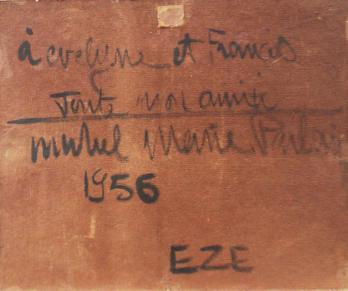 à evelyne et Frances
Toute mon amitié
Michel Marie Poulain
1956
EZE